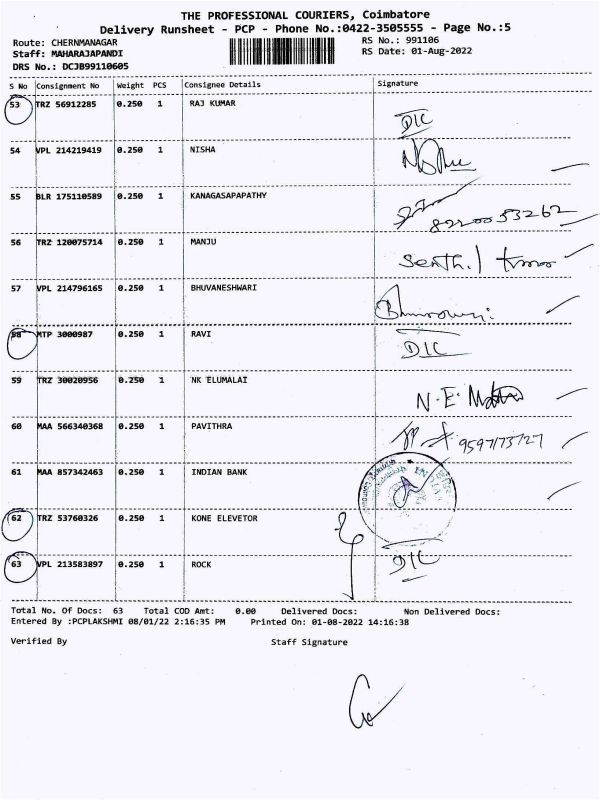 THE PROFESSIONAL COURIERS, Coimbatore
Delivery Runsheet - PCP - Phone No.:0422-3505555 - Page No.:5
Route: CHERNMANAGAR RS No.: 991106
Staff: MAHARAJAPANDI RS Date: 01-Aug-2022
DRS No.: DCJB99110605
S No Consignment No Weight PCS Consignee Details Signature
53 TRZ 56912285 0.250 1 RAJ KUMAR
DIC
54 VPL 214219419 0.250 1 NISHA
55 BLR 175110589 0.250 1 KANAGASAPAPATHY
56 TRZ 120075714 0.250 1 MANJU
57 VPL 214796165 0.250 1 BHUVANESHWARI
58 MTP 3000987 0.250 1 RAVI
DIC
59 TRZ 30020956 0.250 1 NK ELUMALAI
N.E.
60 MAA 566340368 0.250 1 PAVITHRA
9597173727
61 MAA 857342463 0.250 1 INDIAN BANK
62 TRZ 53760326 0.250 1 KONE ELEVETOR
63 VPL 213583897 0.250 1 ROCK
DIC
Total No. Of Docs: 63 Total COD Amt: 0.00 Delivered Docs: Non Delivered Docs:
Entered By :PCPLAKSHMI 08/01/22 2:16:35 PM Printed On: 01-08-2022 14:16:38
Verified By Staff Signature